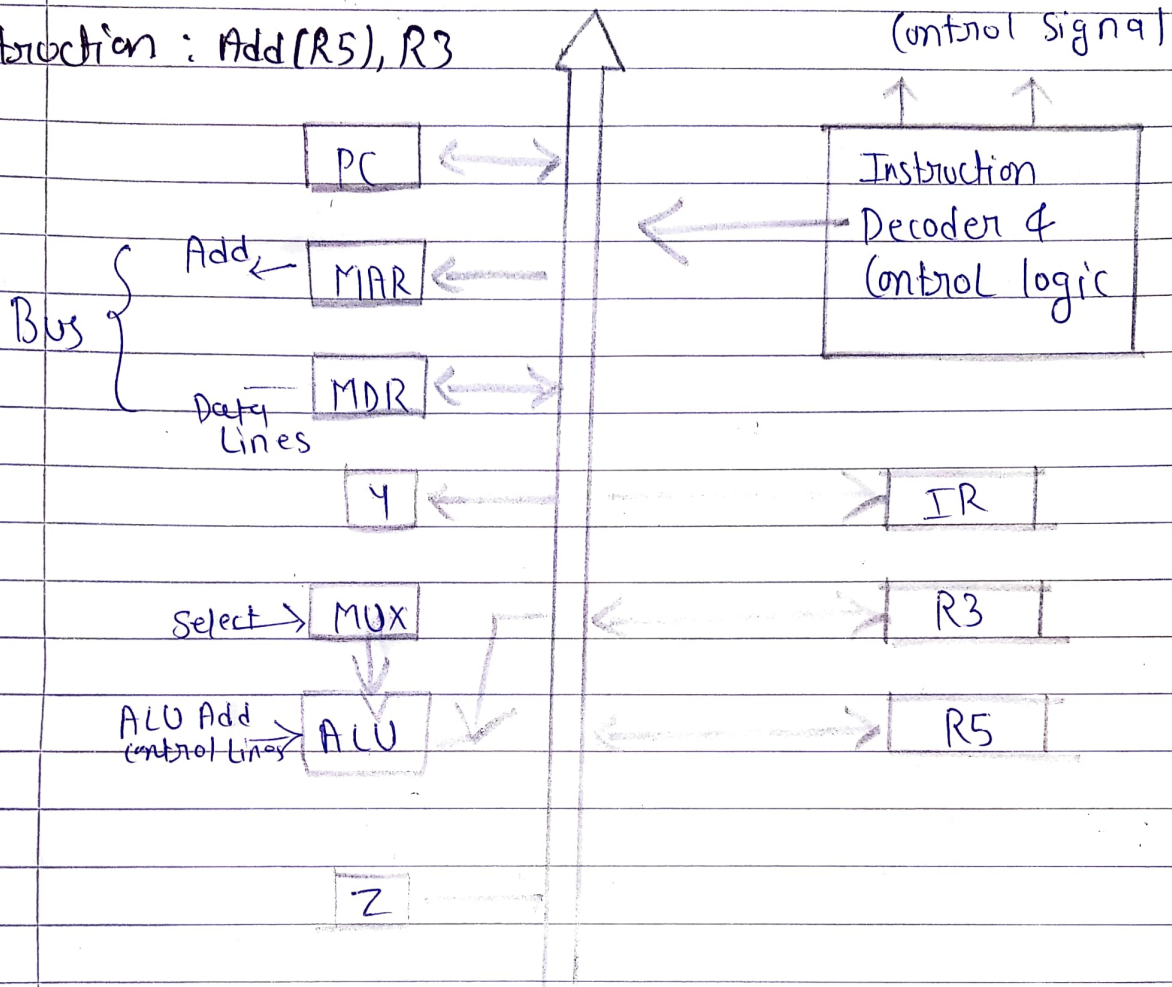 truction : Add (R5), R3
Control Signal
PC
Instruction
Decoder &
Control logic
Add
MAR
Bus
MDR
Data
Lines
Y
IR
Select
MUX
R3
ALU Add
Control Lines
ALU
R5
Z